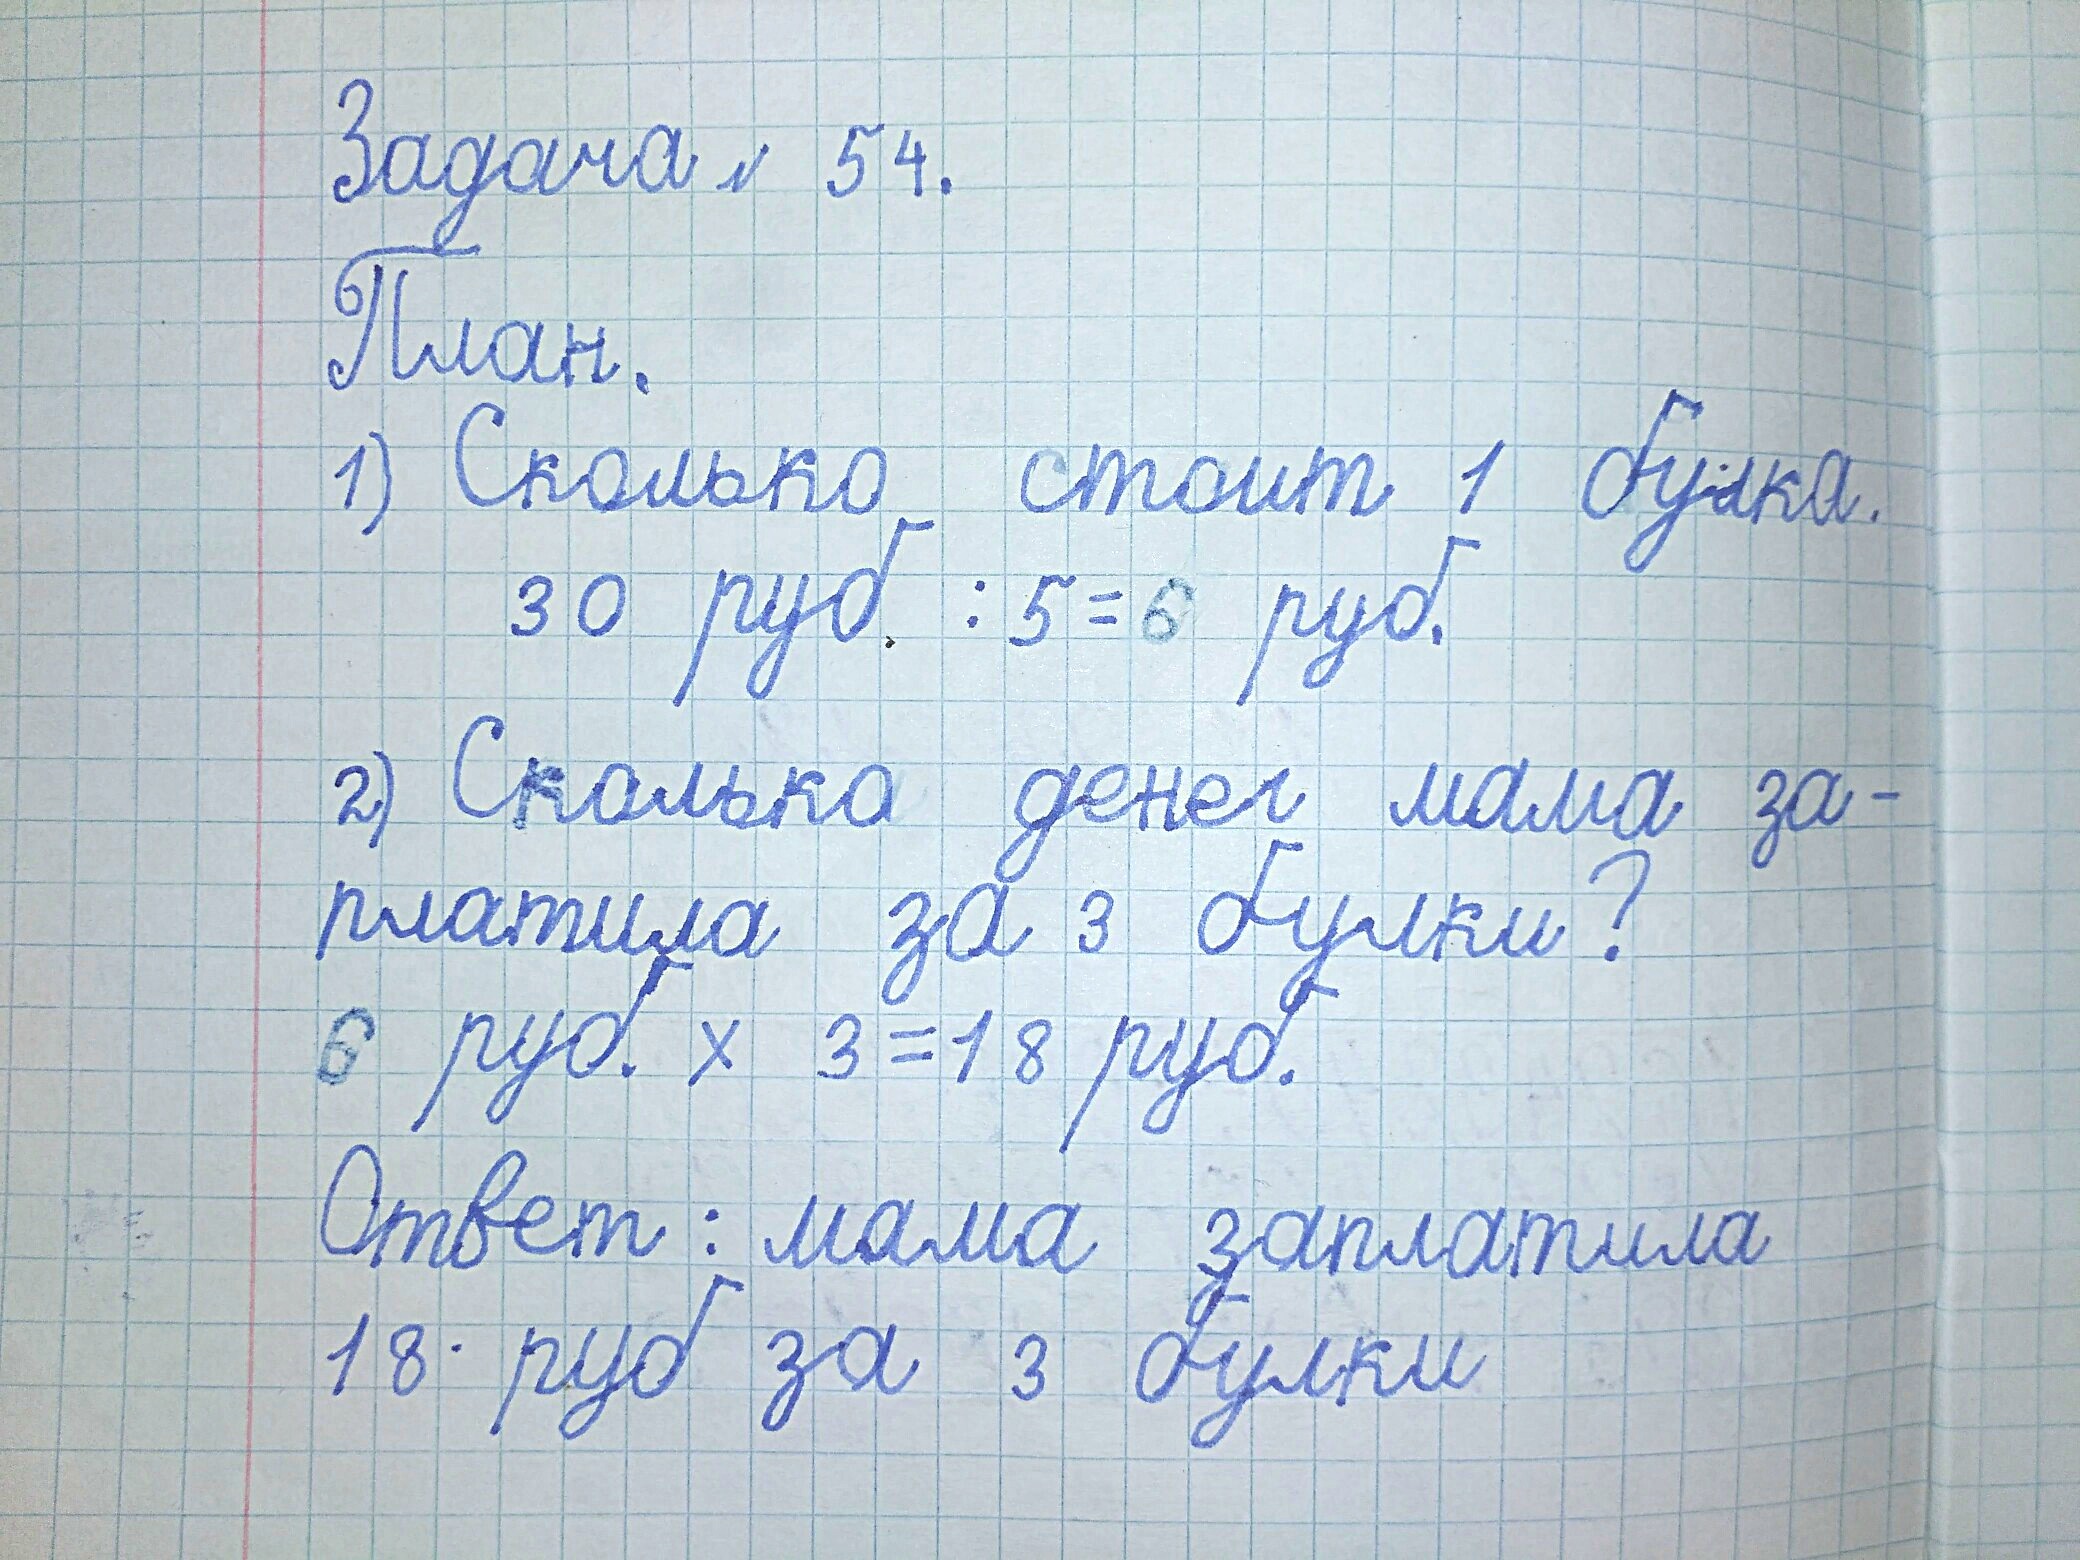 Задача № 54.
План.
1) Сколько стоит 1 булка.
30 руб. : 5 = 6 руб.
2) Сколько денег мама за-
платила за 3 булки?
6 руб. х 3 = 18 руб.
Ответ : мама заплатила
18. руб за 3 булки